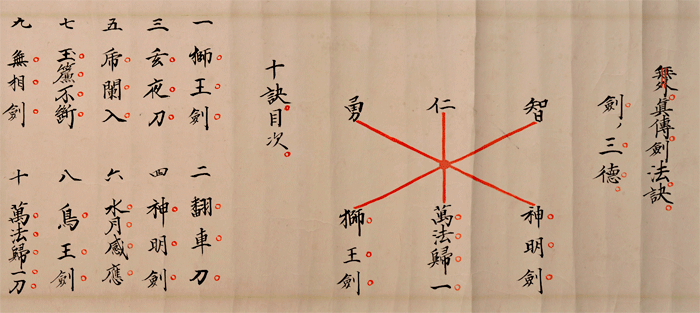 無外眞傳劍法訣
劍ノ三德
智
神明劍
仁
萬法歸一
勇
獅王劍
十訣目次
一 獅王劍
二 翻車刀
三 玄夜刀
四 神明劍
五 乕闌入
六 水月感應
七 玉簾不断
八 鳥王劍
九 無相劍
十 萬法歸一刀